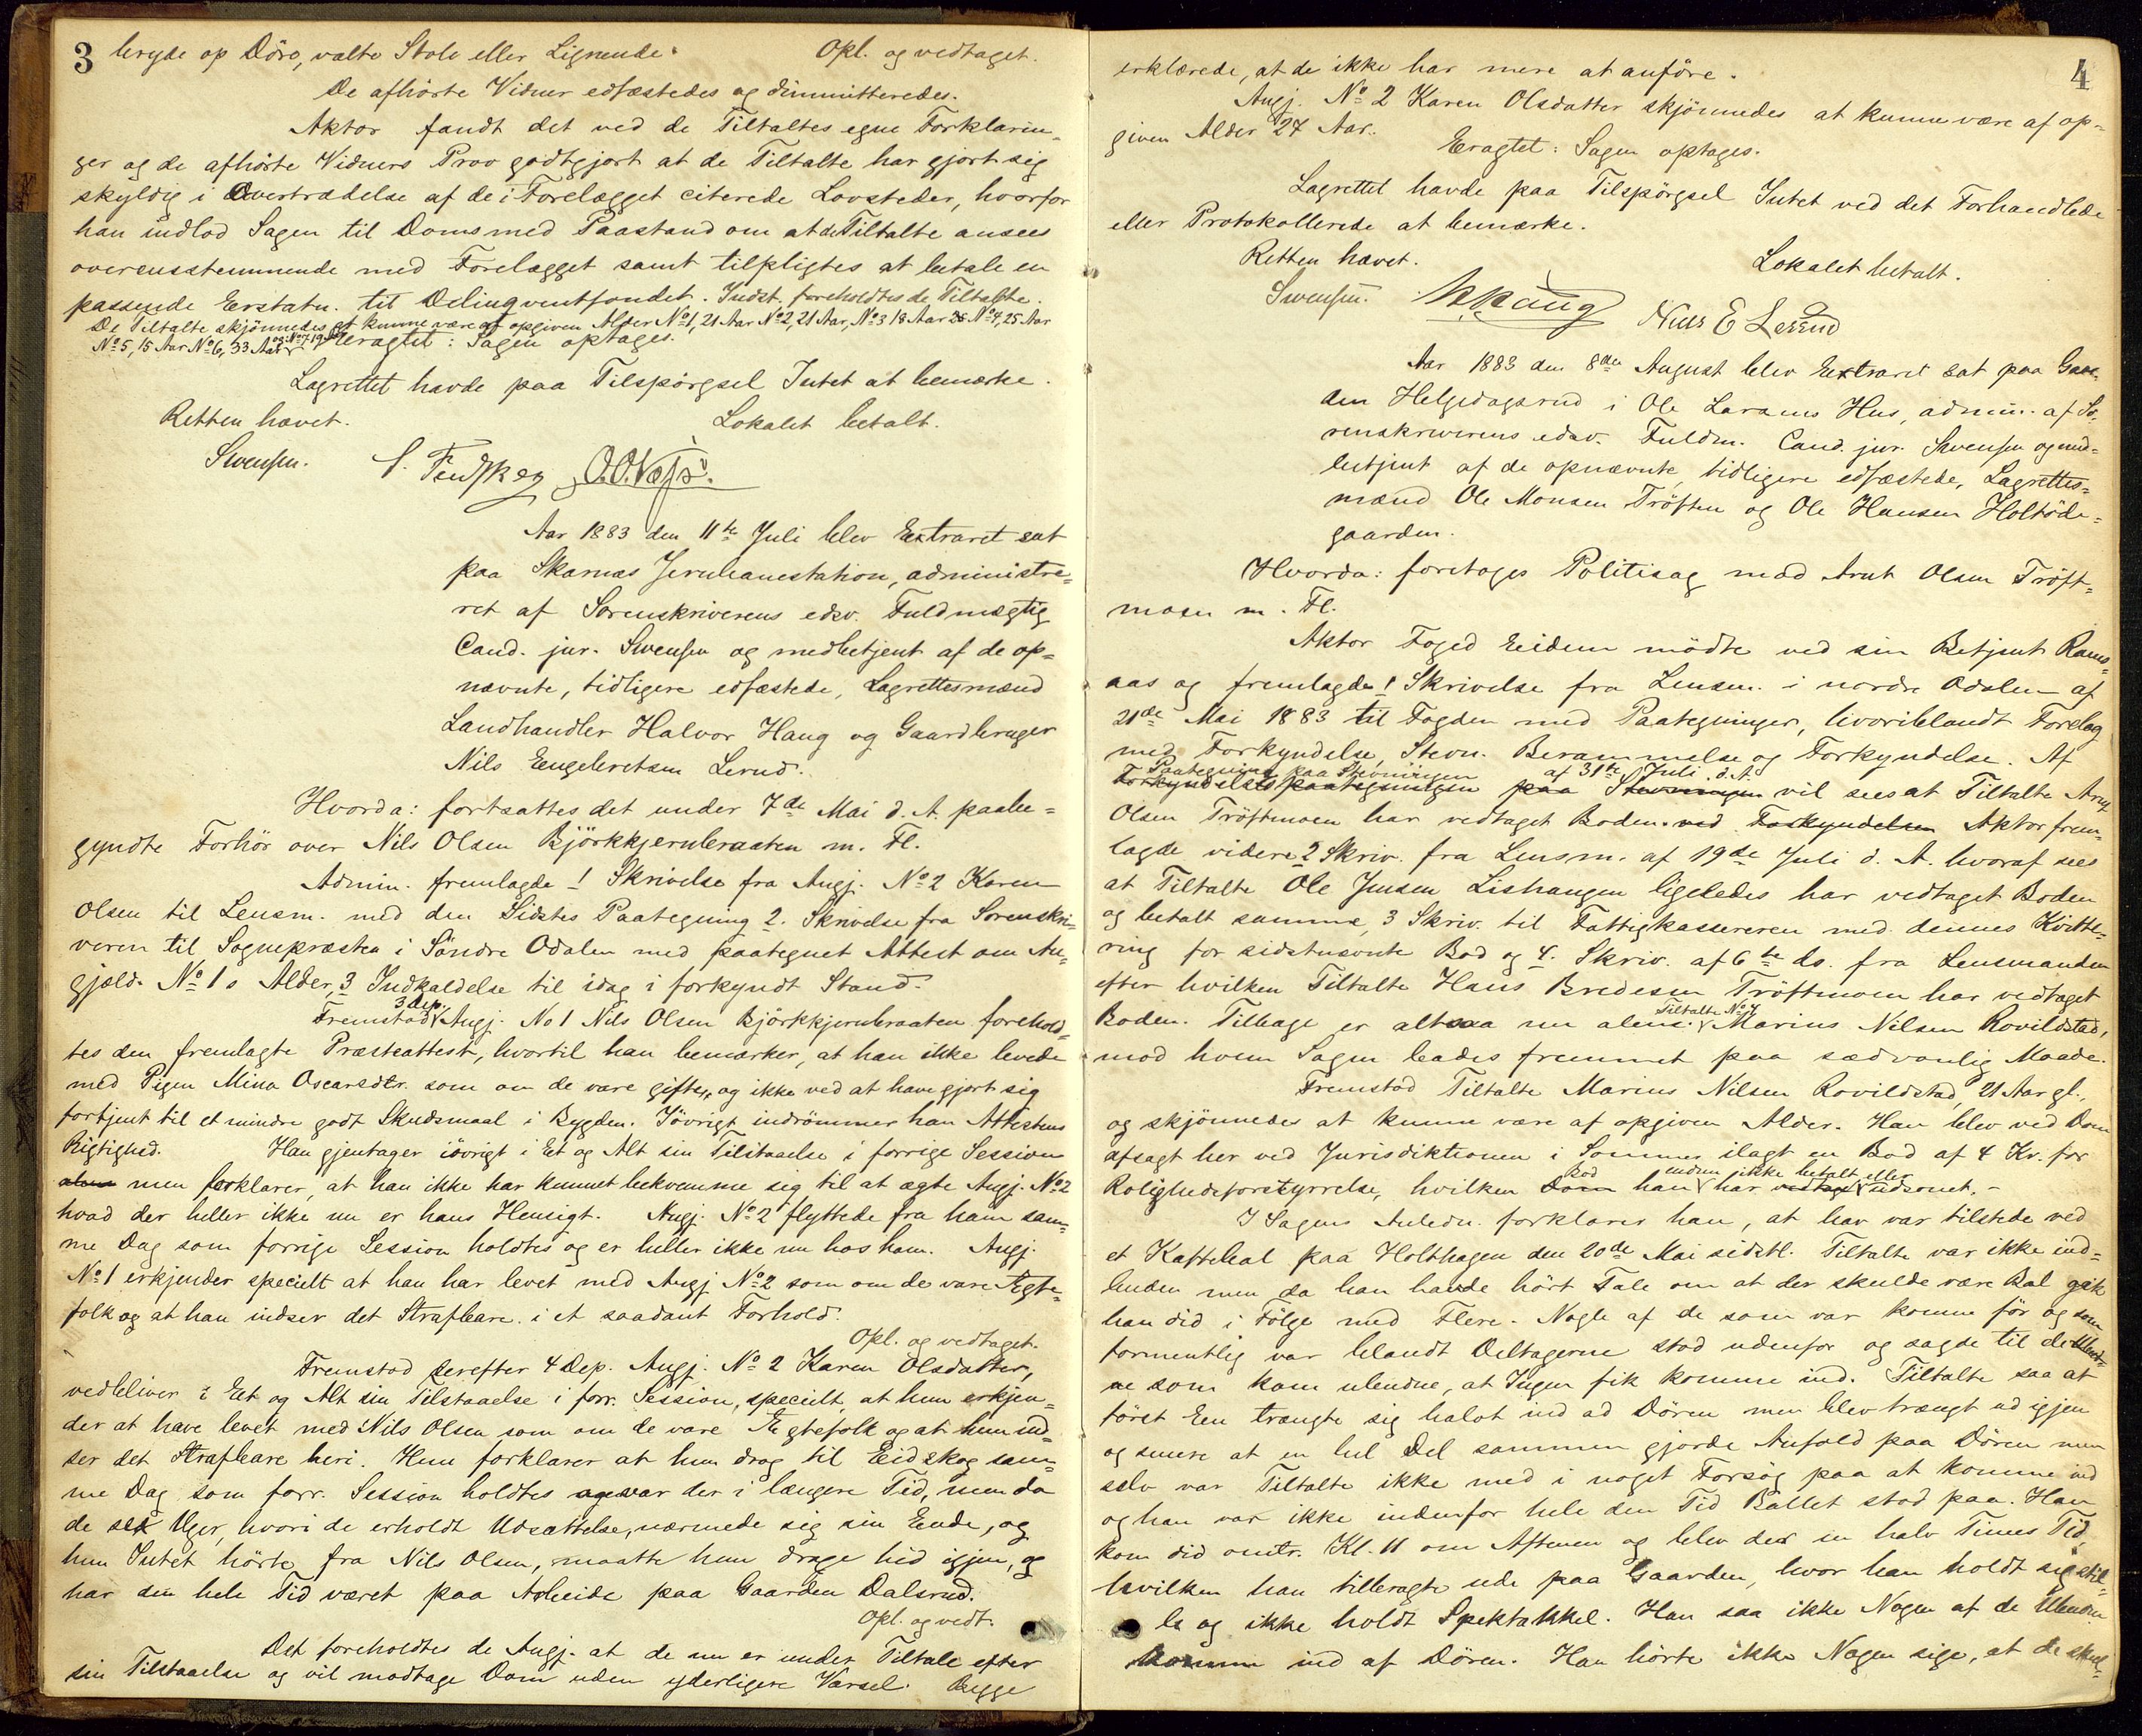 3
bryde op Döre, valte Stole eller Lignende. Opl. og vedtaget.
De afhørte Vidner edfæstedes og dimmitteredes.
Aktor fandt det ved de Tiltaltes egne Forklarin-
ger og de afhørte Vidners Prov godtgjort at de Tiltalte har gjort sig
skyldig i Overtrædelse af de i Forelægget citerede Lovsteder, hvorfor
han indlod Sagen til Doms med Paastand om at de Tiltalte ansees
overensstemmende med Forelægget samt tilpligtes at betale en
passende Erstatn. til Delinqventfondet. Indst. foreholdtes de Tiltalte.
De Tiltalte skjønnedes at kunne være af opgiven Alder No 1, 21 Aar No 2, 21 Aar, No 3 18 Aar No 4, 25 Aar
No 5, 15 Aar No 6, 33 Aar og No 7 19 Aar
Eragtet: Sagen optages.
Lagrettet havde paa Tilspørgsel Intet at bemærke.
Retten hævet. Lokalet betalt.
Swensen. O.O. Næss.
Aar 1883 den 11te Juli blev Extraret sat
paa Skarnæs Jernbanestation, administre=
ret af Sorenskriverens edsv. Fuldmægtig
Cand. jur. Swensen og medbetjent af de op=
nævnte, tidligere edfæstede, Lagrettesmænd
Landhandler Halvor Haug og Gaardbruger
Nils Engebretsen Lerud.
Hvorda: fortsattes det under 7de Mai d. A. paabe=
gyndte Forhör over Nils Olsen Björkkjernbraaten m. Fl.
Admin. fremlagde 1 Skrivelse fra Angj. No 2 Karen
Olsen til Lensm. med den Sidstes Paategning 2. Skrivelse fra Sorenskri-
veren til Sognepræsten i Söndre Odalen med paategnet Attest om An-
gjeld. No 1s Alder, 3 Indkaldelse til idag i forkyndt Stand.
Fremstod 3 Dep. Angj. No 1 Nils Olsen Björkkjernbraaten forehold-
tes den fremlagte Præsteattest, hvortil han bemærker, at han ikke levede
med Pigen Mina Oscarsdtr. som om de vare gifte, og ikke ved at have gjort sig
fortjent til et mindre godt Skudsmaal i Bygden. Iövrigt indrömmer han Attestens
Rigtighed. Han gjentager iövrigt i Et og Alt sin Tilstaaelse i forrige Session
men forklarer, at han ikke har kunnet bekvemme sig til at ægte Angj. No 2
hvad der heller ikke nu er hans Hensigt. Angj. No 2 flyttede fra ham sam-
me Dag som forrige Session holdtes og er heller ikke nu hos ham. Angj.
No 1 erkjender specielt at han har levet med Angj No 2 som om de vare Ægte=
folk og at han indser det Strafbare i et saadant Forhold.
Opl. og vedtaget.
Fremstod derefter 4 Dep. Angj. No 2 Karen Olsdatter,
vedbliver i Et og Alt sin Tilstaaelse i forr. Session, specielt, at hun erkjen=
der at have levet med Nils Olsen som om de vare Ægtefolk og at hun ind=
ser det Strafbare heri. Hun forklarer at hun drog til Eidskog sam=
me Dag som forr. Session holdtes og var der i længere Tid, men da
de sex Uger, hvori de erholdt Udsættelse, nærmede sig sin Ende, og
hun Intet hörte fra Nils Olsen, maatte hun drage hid igjen, og
har den hele Tid været paa Arbeide paa Gaarden Dalsrud.
Opl. og vedt.
Det foreholdtes de Angj. at de nu er under Tiltale efter
sin Tilstaaelse og vil modtage Dom uden yderligere Varsel. Begge
4
erklærede, at de ikke har mere at anføre.
Angj. No 2 Karen Olsdatter skjönnedes at kunne være af op=
given Alder 27 Aar.
Eragtet: Sagen optages.
Lagrettet havde paa Tilspörgsel Intet ved det Forhandlede
eller Protokollerede at bemærke.
Retten hævet. Lokalet betalt.
Swensen. H. Haug Nils E Lerud
Aar 1883 den 8de August blev Extraret sat paa Gaar-
den Helgedagsrud i Ole Larsens Hus, admin. af So-
renskriverens edsv. Fuldm. Cand. jur. Swensen og med=
betjent af de opnævnte, tidligere edfæstede, Lagrettes=
mænd Ole Monsen Tröften og Ole Hansen Holtöde=
gaarden.
Hvorda: foretoges Politisag mod Arnt Olsen Tröft=
moen m. Fl.
Aktor Foged Eidem mödte ved sin Betjent Rams=
aas og fremlagde 1 Skrivelse fra Lensm. i nordre Odalen af
21de Mai 1883 til Fogden med Paategninger, hvoriblandt Forelæg
med Forkyndelse, Stevn. Berammelse og Forkyndelse. Af
Paategning paa Stevningen af 31te Juli d. A.
Forkyndelsespaategningen paa Stevningen vil sees at Tiltalte Arnt
Olsen Tröftmoen har vedtaget Boden ved Forkyndelsen Aktor frem-
lagde videre 2 Skriv. fra Lensm. af 19de Juli d. A. hvoraf sees
at Tiltalte Ole Jensen Lishaugen ligeledes har vedtaget Boden
og betalt samme, 3 Skriv. til Fattigkassereren med dennes Kvitte=
ring for sidstnævnte Bod og 4. Skriv. af 6te ds. fra Lensmanden
efter hvilken Tiltalte Hans Bredesen Tröftmoen har vedtaget
Boden. Tilbage er altsaa nu alene Tiltalte No 4 Marius Nilsen Rovildstad,
mod hvem Sagen bades fremmet paa sædvanlig Maade.
Fremstod Tiltalte Marius Nilsen Rovildstad, 21 Aar gl.,
og skjönnedes at kunne være af opgiven Alder. Han blev ved Dom
afsagt her ved Jurisdiktionen i Sommer ilagt en Bod af 4 Kr. for
Rolighedsforstyrrelse, hvilken Dom Bod han endnu ikke har betalt eller udsonet.-
I Sagens Anledn. forklarer han, at han var tilstede ved
et Kaffebal paa Holthagen den 20de Mai sidstl. Tiltalte var ikke ind=
buden men da han havde hört Tale om at der skulde være Bal gik
han did i Fölge med Flere. Nogle af de som var komne för og som
formentlig var blandt Deltagerne stod udenfor og sagde til de Ubud-
ne som kom ubudne, at Ingen fik komme ind. Tiltalte saa at
först En trængte sig halvt ind ad Dören men blev trængt ud igjen
og senere at en hel Del sammen gjorde Anfald paa Dören men
selv var Tiltalte ikke med i noget Forsög paa at komme ind
og han var ikke indenfor hele den Tid Ballet stod paa. Han
kom did omtr. Kl. 11 om Aftenen og blev der en halv Times Tid,
hvilken han tilbragte ude paa Gaarden, hvor han holdt sig stil-
le og ikke holdt Spektakkel. Han saa ikke Nogen af de Ubudne
komme ind af Dören. Han hörte ikke Nogen sige, at de skul-